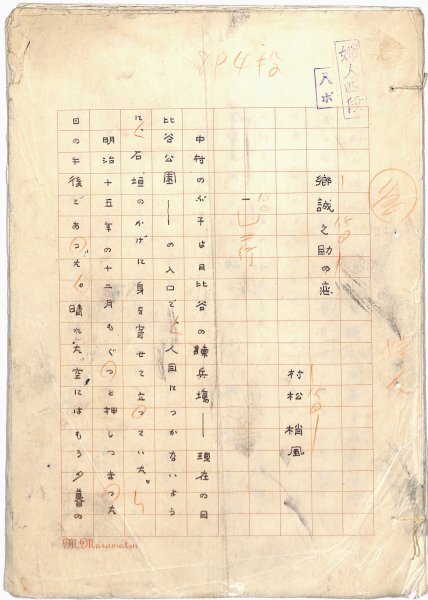 8P4段
婦人四段
鄕誠之助の恋
村松梢風
中村のぶ子は日比谷の練兵場――現在の日
比谷公園――の入口で、人目につかないよう
に、石垣のかげに身を寄せて立つていた。
明治十五年の十二月もぐつと押しつまつた
日の午後であつた。晴れた空にはもう夕暮の
M.Muramatsu